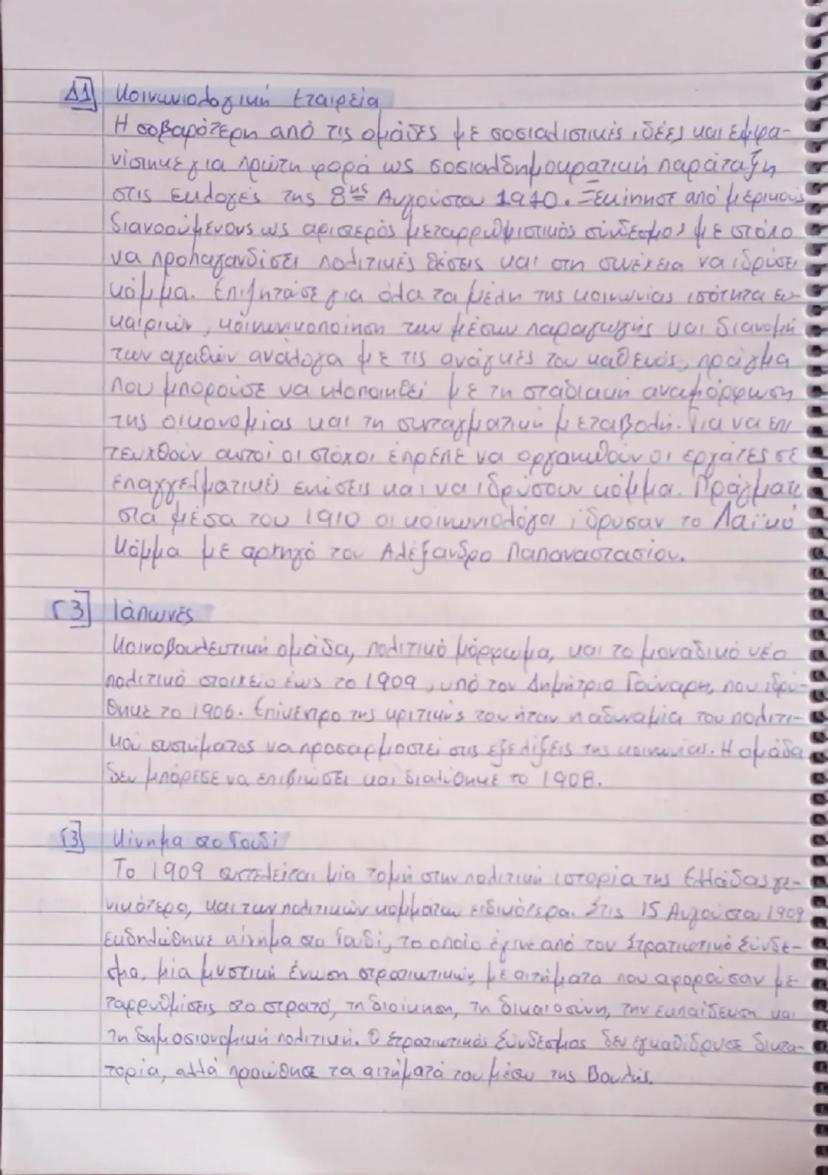 Δ1] Κοινωνιολογική Εταιρεία
Η σοβαρότερη από τις ομάδες με σοσιαλιστικές ιδέες και εμφα-
νίστηκε για πρώτη φορά ως σοσιαλδημοκρατική παράταξη
στις εκλογές της 8ης Αυγούστου 1910. Ξεκίνησε από μερικούς
διανοούμενους ως αριστερός μεταρρυθμιστικός σύνδεσμος με στόχο
να προπαγανδίσει πολιτικές θέσεις και στη συνέχεια να ιδρύσει
κόμμα. Επιζητάσε για όλα τα μέλη της κοινωνίας ισότητα ευ-
καιριών, κοινωνικοποίηση των μέσων παραγωγής και διανομή
των αγαθών ανάλογα με τις ανάγκες του καθενός, πράγμα
που μπορούσε να υλοποιηθεί με τη σταδιακή αναμόρφωση
της οικονομίας και τη συνταγματική μεταβολή. Για να επι
τευχθούν αυτοί οι στόχοι έπρεπε να οργανωθούν οι εργάτες σε
επαγγελματικές ενώσεις και να ιδρύσουν κόμμα. Πράγματι
στα μέσα του 1910 οι κοινωνιολόγοι ίδρυσαν το Λαϊκό
Κόμμα με αρχηγό τον Αλέξανδρο Παπαναστασίου.
Γ3] Ιάπωνες
Κοινοβουλευτική ομάδα, πολιτικό μόρφωμα, και το μοναδικό νέο
πολιτικό στοιχείο έως το 1909, υπό τον Δημήτριο Γούναρη, που ιδρύ-
θηκε το 1906. Επίκεντρο της κριτικής του ήταν η αδυναμία του πολιτι-
κού συστήματος να προσαρμοστεί στις εξελίξεις της κοινωνίας. Η ομάδα
δεν μπόρεσε να επιβιώσει και διαλύθηκε το 1908.
Γ3] Κίνημα στο Γουδί
Το 1909 συντελείται μία τομή στην πολιτική ιστορία της Ελλάδας γε-
νικότερα, και των πολιτικών κομμάτων ειδικότερα. Στις 15 Αυγούστου 1909
εκδηλώθηκε κίνημα στο Γουδί, το οποίο έγινε από τον Στρατιωτικό Σύνδε-
σμο, μία μυστική ένωση στρατιωτικών, με αιτήματα που αφορούσαν με-
ταρρυθμίσεις στο στρατό, τη διοίκηση, τη δικαιοσύνη, την εκπαίδευση και
τη δημοσιονομική πολιτική. Ο Στρατιωτικός Σύνδεσμος δεν εγκαθίδρυσε δικτα-
τορία, αλλά προώθησε τα αιτήματά του μέσω της Βουλής.